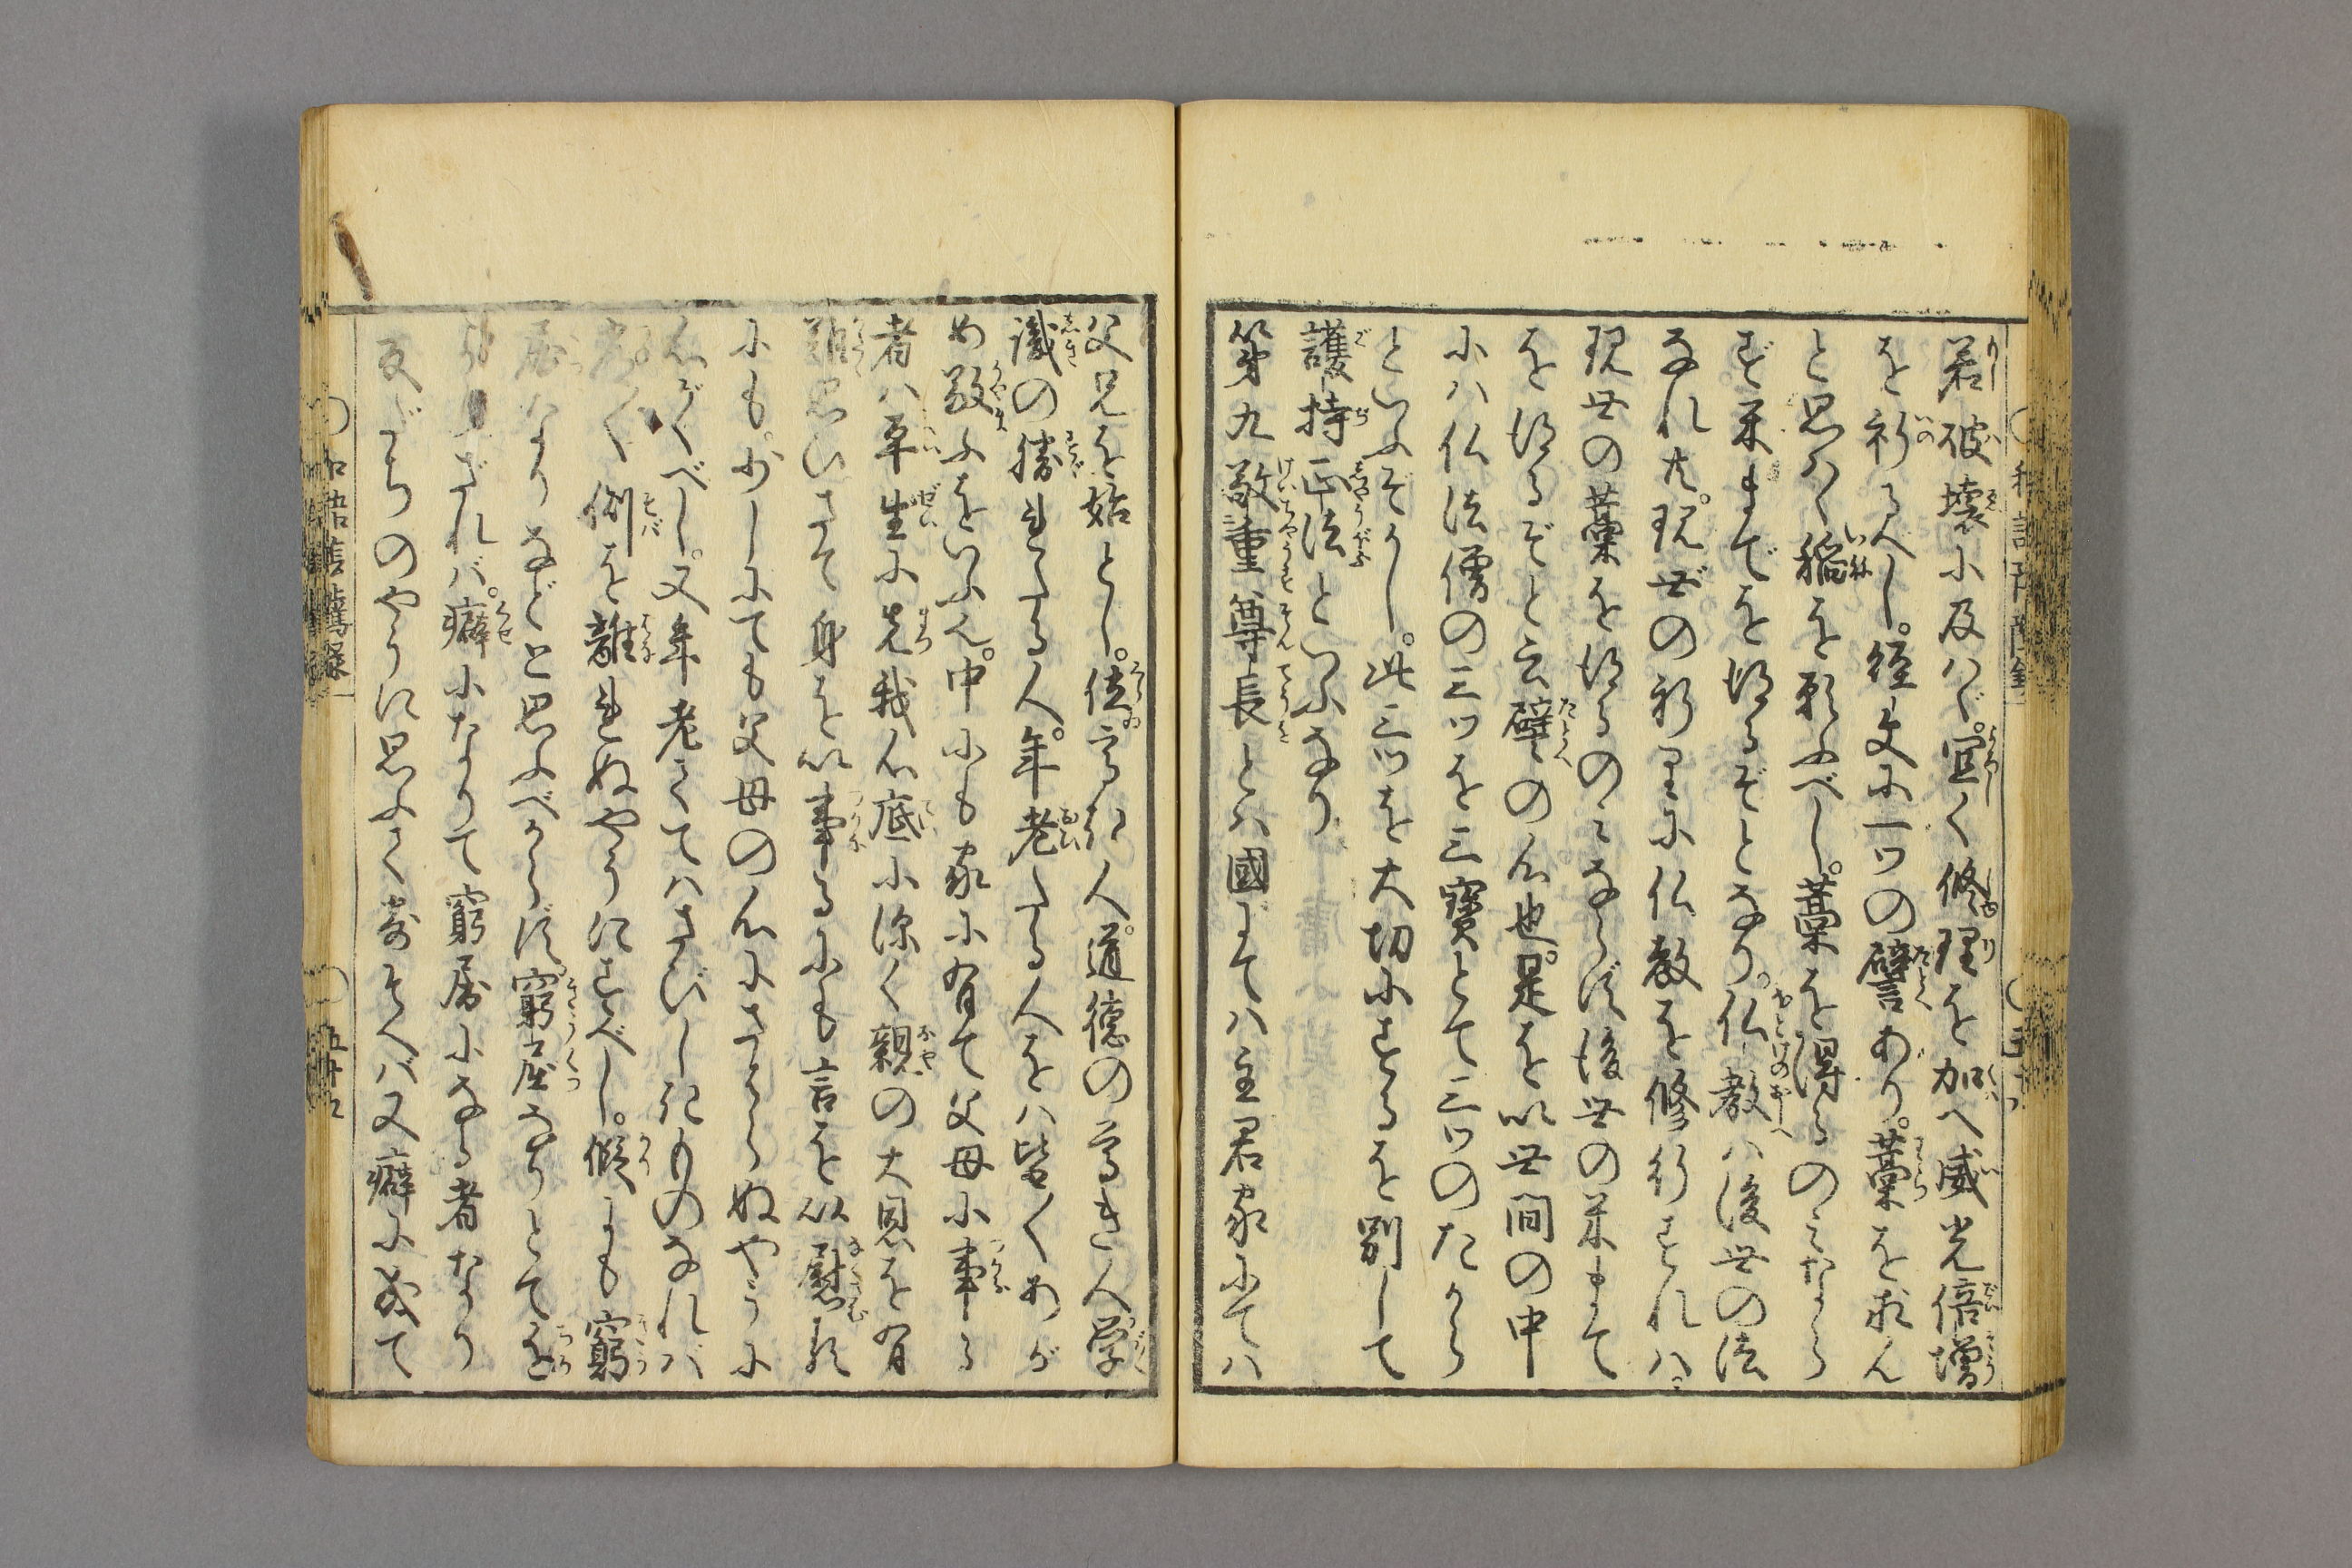 若破壊に及ハヾ。宜く修理を加へ威光倍増
を祈るべし。経文に一ツの譬あり。藁を求ん
と思ハく稲を願ふべし。藁を得るのみなら
ず米までを得るぞとなり。仏教ハ後世の法
なれ共。現世の祈りに仏教を修行すれハ
現世の藁を得るのミならず後世の米まて
を得るぞと云譬の心也。是を以世間の中
にハ仏法僧の三ツを三寳とて三ツのたから
といふぞかし。此三ツを大切にするを別して
護持正法といふなり
第九敬重尊長とハ國にてハ主君家にてハ
父兄を始とし。位高き人。道徳の高き人。学
識の勝れたる人。年老たる人をハ皆くあが
め敬ふをいふ也。中にも家に有て父母に事る
者ハ平生に先我心底に深く親の大恩を有
難思いさて身を以事るにも言を以慰る
にも。少しにても父母の心にさからぬやうに
心がくべし。又年老てハさびしきものなれバ
く側を離れぬやうにすべし。假にも窮
屈なりなど思ふべからず。窮屈なりとて
ざれバ。癖になりて窮屈になる者なり
友だちのやうに思ふて寄そへバ又癖に成て